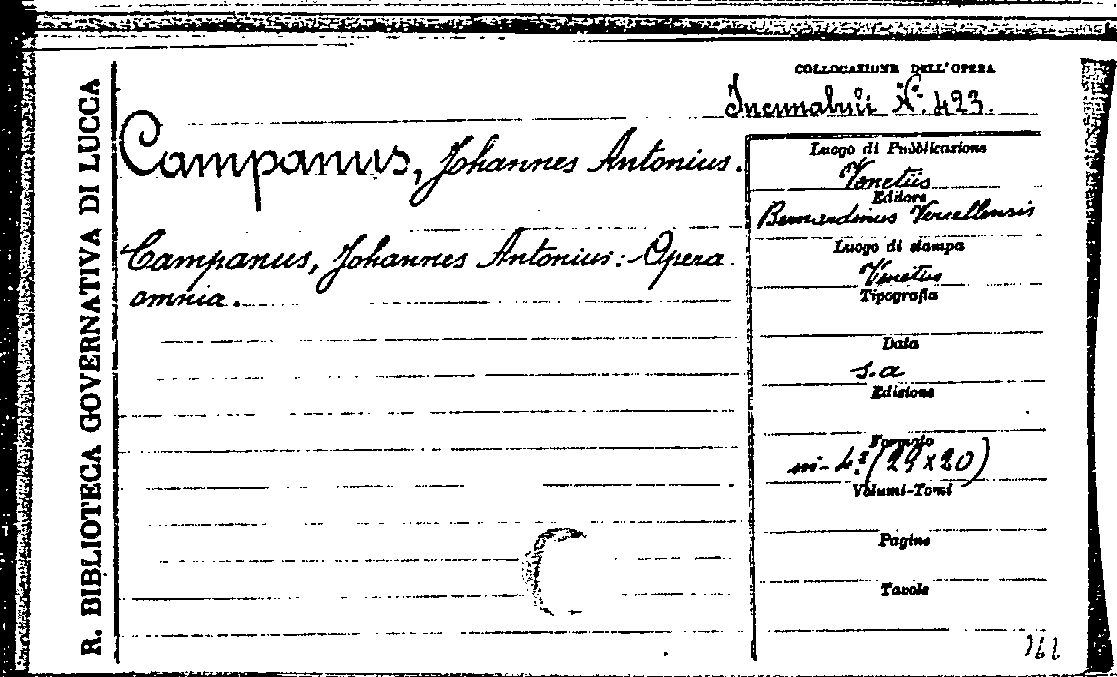 R. BIBLIOTECA GOVERNATIVA DI LUCCA
COLLOCAZIONE DELL'OPERA
Incunabuli N.° 423.
Campanus, Johannes Antonius.
Campanus, Johannes Antonius: Opera
omnia.
Luogo di Pubblicazione
Venetiis
Editore
Bernardinus Vercellensis
Luogo di stampa
Venetiis
Tipografia
Data
s.a
Edizione
Formato
in-4.° (29x20)
Volumi-Tomi
Pagine
Tavole